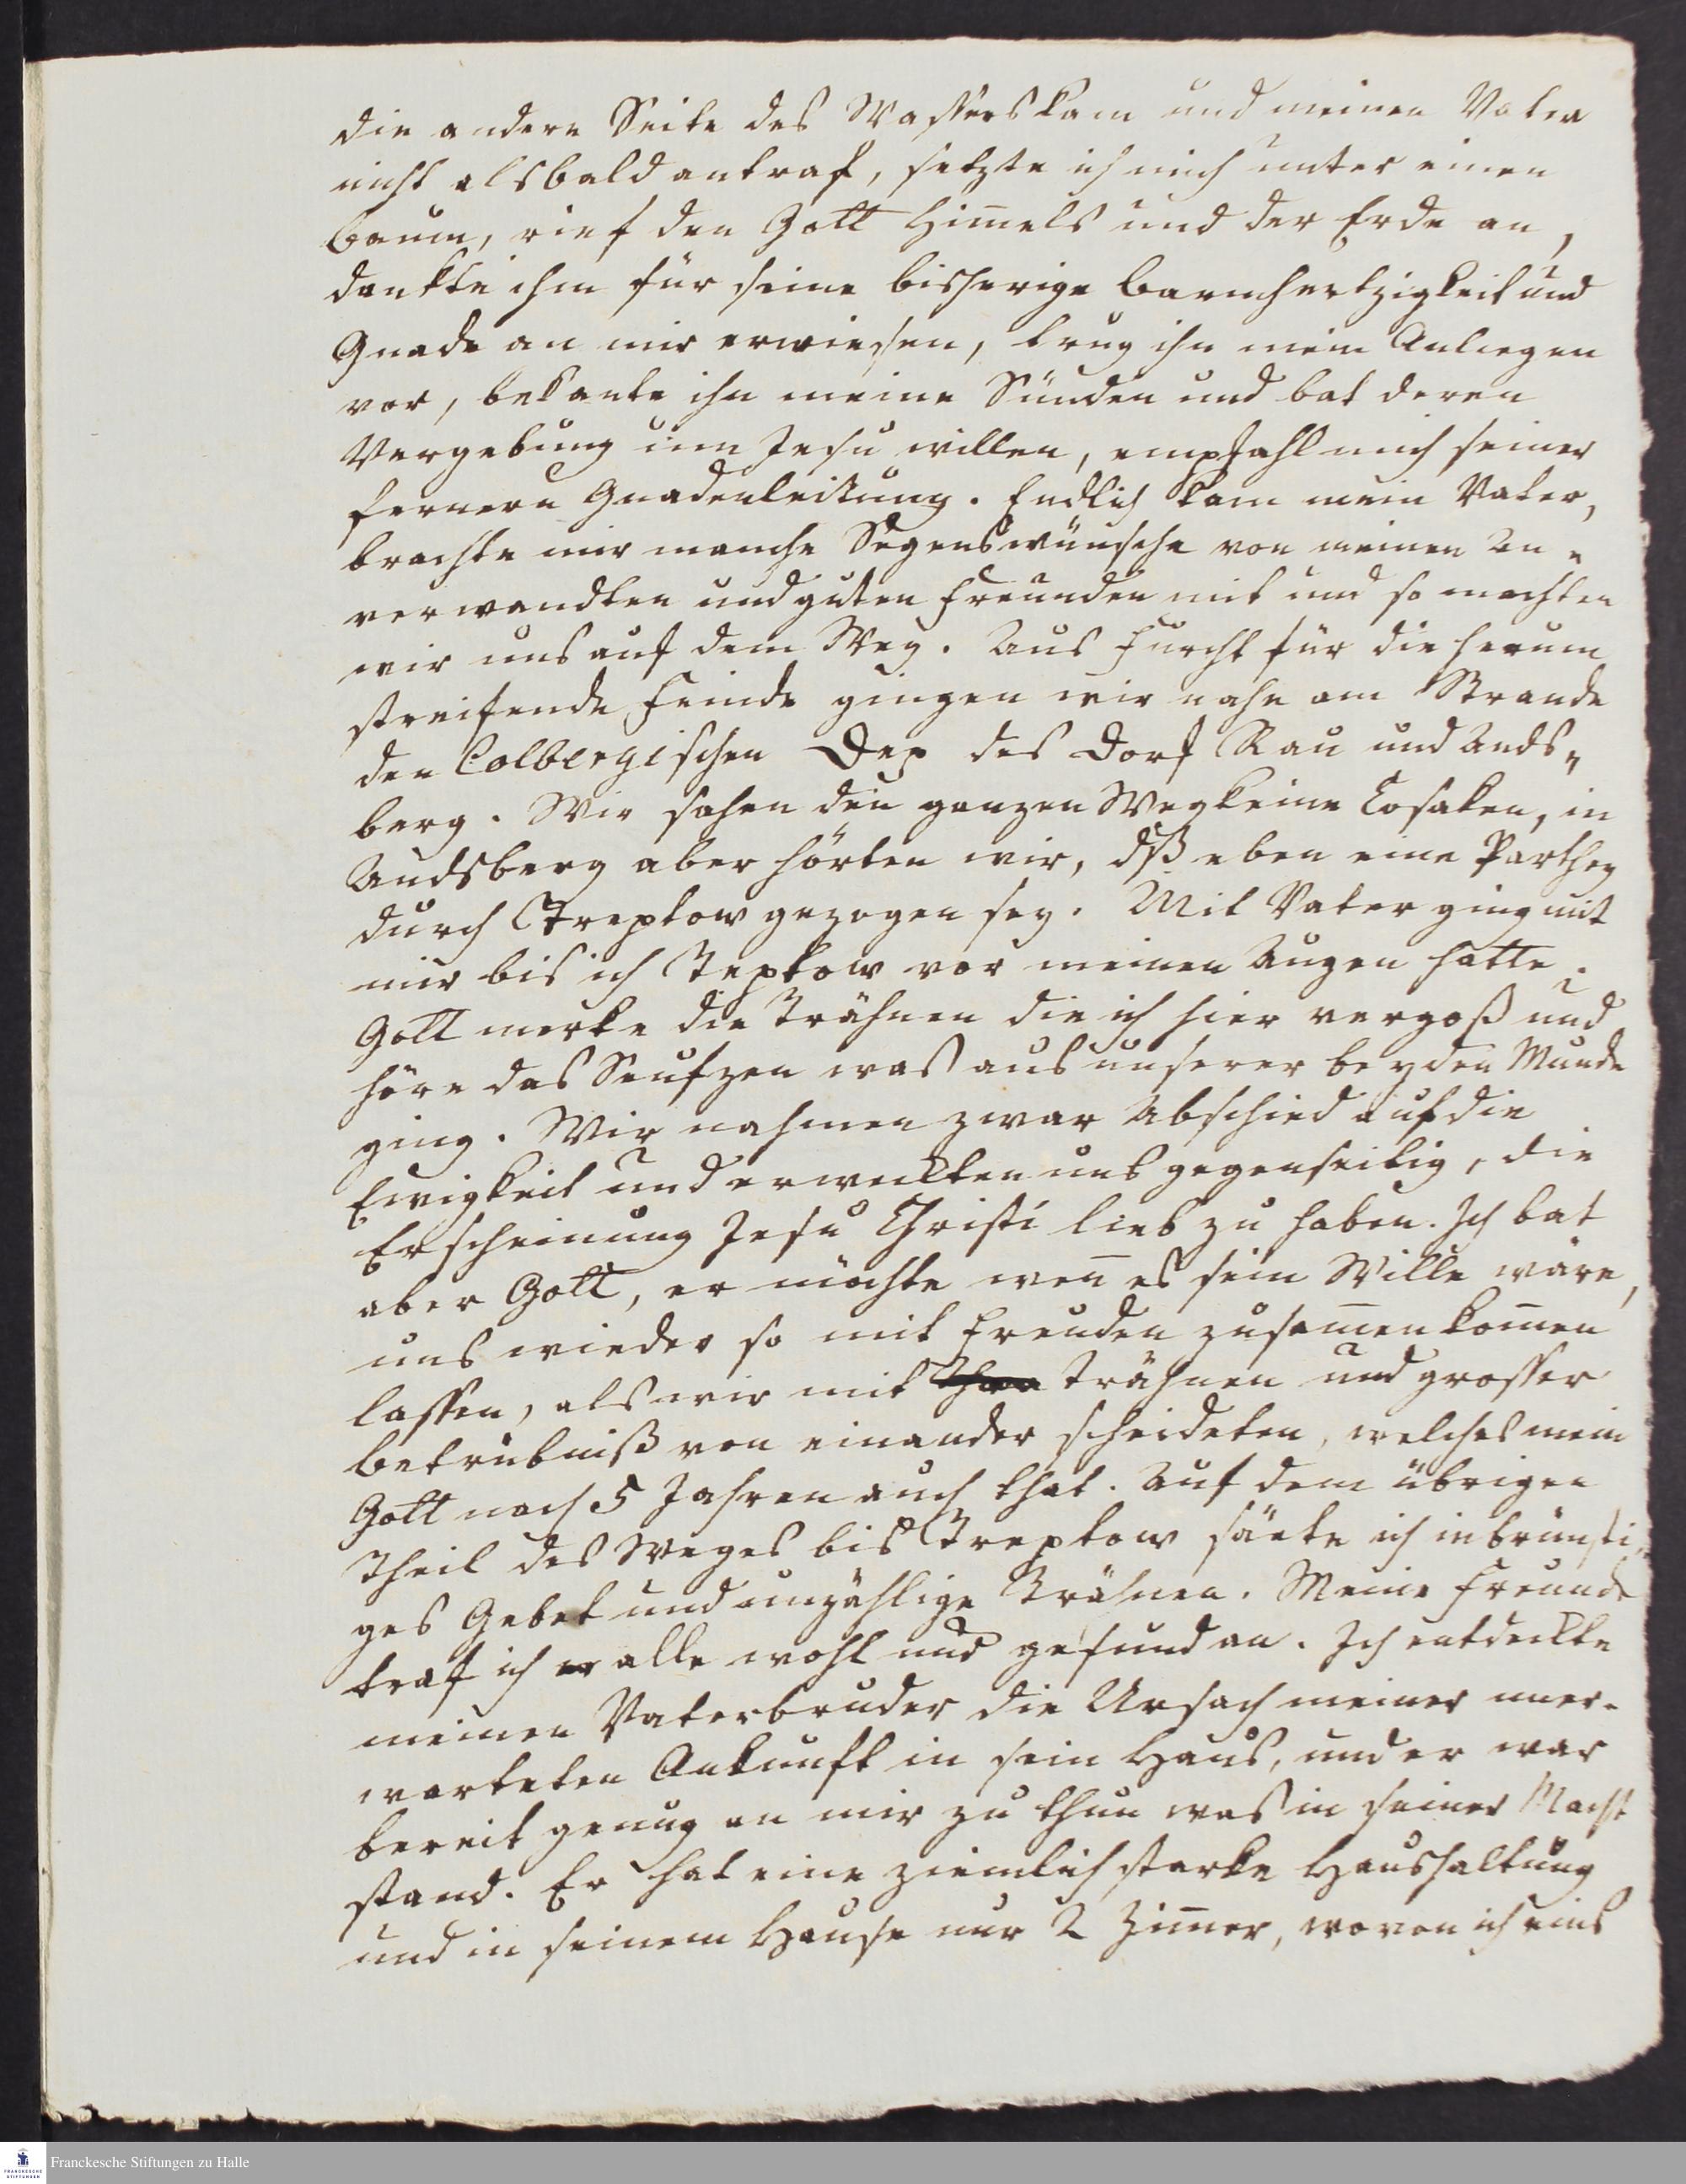 die andere Seite des Wassers kam und meinen Vater
nicht alsbald antraf, setzte ich mich unter einen
Baum, rief den Gott Him̄els und der Erde an,
dankte ihm für seine bisherige Barmhertzigkeit und
Gnade an mir erwiesen, trug ihn mein Anliegen
vor, bekante ihn meine Sünden und bat deren
Vergebung um Jesu willen, empfahl mich seiner
fernern Gnadenleitung. Endlich kam mein Vater,
brachte mir manche Segenswünsche von meinen An„
verwandten und guten Freunden mit und so machten
wir uns auf dem Weg. Aus Furcht für die herum
streifende Feinde gingen wir nahe am Strande
den Colbergischen Dep des Dorf Rau und Ands„
berg. Wir sahen den ganzen Weg keine Cosaken, in
Andsberg aber hörten wir, dß eben eine Parthey
durch Treptow gezogen sey. Mit Vater ging mit
mir bis ich Teptow vor meinen Augen hatte.
Gott merke die Trähnen die ich hier vergoß und
höre das Seufzen was aus unserer beyden Munde
ging. Wir nahmen zwar Abschied auf die
Ewigkeit und erweckten uns gegenseitig, die
Erscheinung Jesu Christi lieb zu haben. Ich bat
aber Gott, er möchte wen̄ es sein Wille wäre,
uns wieder so mit Freuden zusam̄en kom̄en
lassen, als wir mit Trähnen und grosser
Betrübniß von einander scheideten, welches mein
Gott nach 5 Jahren auch that. Auf dem übrigen
Theil des Weges bis Treptow säete ich inbrünsti„
ges Gebet und unzählige Trähnen. Meine Freunde
traf ich er alle wohl und gesund an. Ich entdeckte
meinen Vaterbruder die Ursach meiner uner-
warteten Ankunft in sein Haus, und er war
bereit genug an mir zu thun was in seiner Macht
stand. Er hat eine ziemlich starke Haushaltung
und in seinem Hause nur 2 Zim̄er, wovon ich eins
Franckesche Stiftungen zu Halle